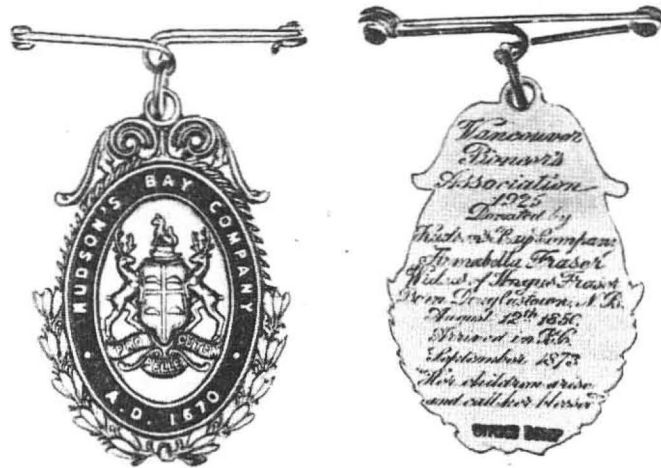 HUDSON'S BAY COMPANY
A.D. 1670
PRO CUTEM
PELLE
Vancouver
Pioneer's
Association
1925
Donated by
Hudson's Bay Company
Annabella Fraser
Widow of Angus Fraser
Born Douglastown, N.B.
August 12th 1850
Arrived in B.C.
September 1873
"Her children arise
and call her blessed"